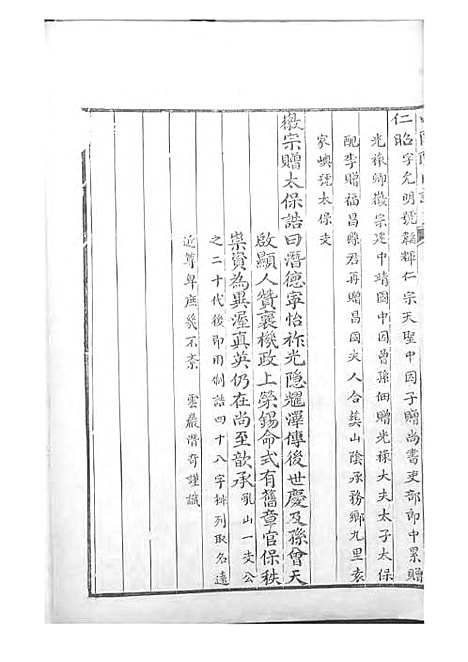 仁昭字允明號韜輝仁宗天聖中因子贈尚書吏部郎中累贈
光祿卿徽宗建中靖國中因曾孫佃贈光祿大夫太子太保
配李贈福昌縣君再贈昌國夫人合葬山陰承務鄉九里袁
家嶴號太保支
徽宗贈太保誥曰潛德寧怡祚光隱耀澤傳後世慶及孫曾天
啟顯人贊襄機政上榮錫命式有舊章官保秩
崇資為異渥真英仍在尚至歆承 乳山一支公
之二十代後即用制誥四十八字排列取名遠
近尊卑庶幾不紊 雲巖滑奇謹識